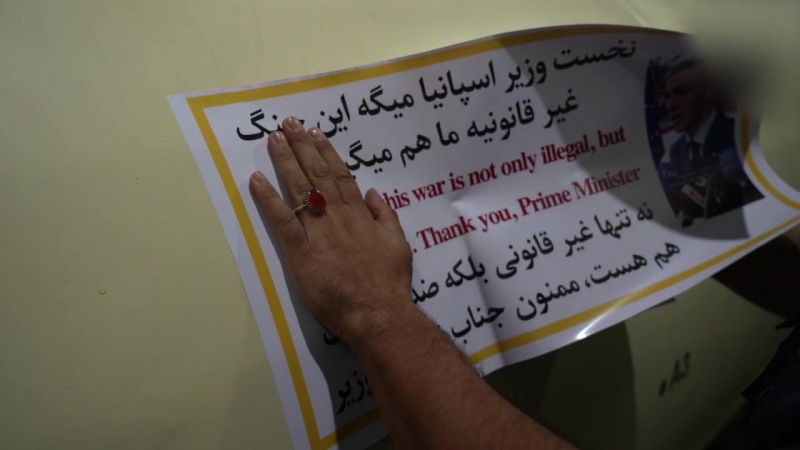 نخست وزیر اسپانیا میگه این جنگ
غیر قانونیه ما هم میگیم
his war is not only illegal, but
. Thank you, Prime Minister
نه تنها غیر قانونی بلکه ضد
هم هست، ممنون جناب
وزیر
A3